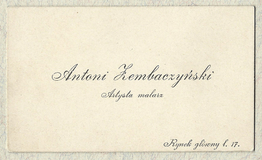 Antoni Zembaczyński
Artysta malarz
Rynek główny l. 17.